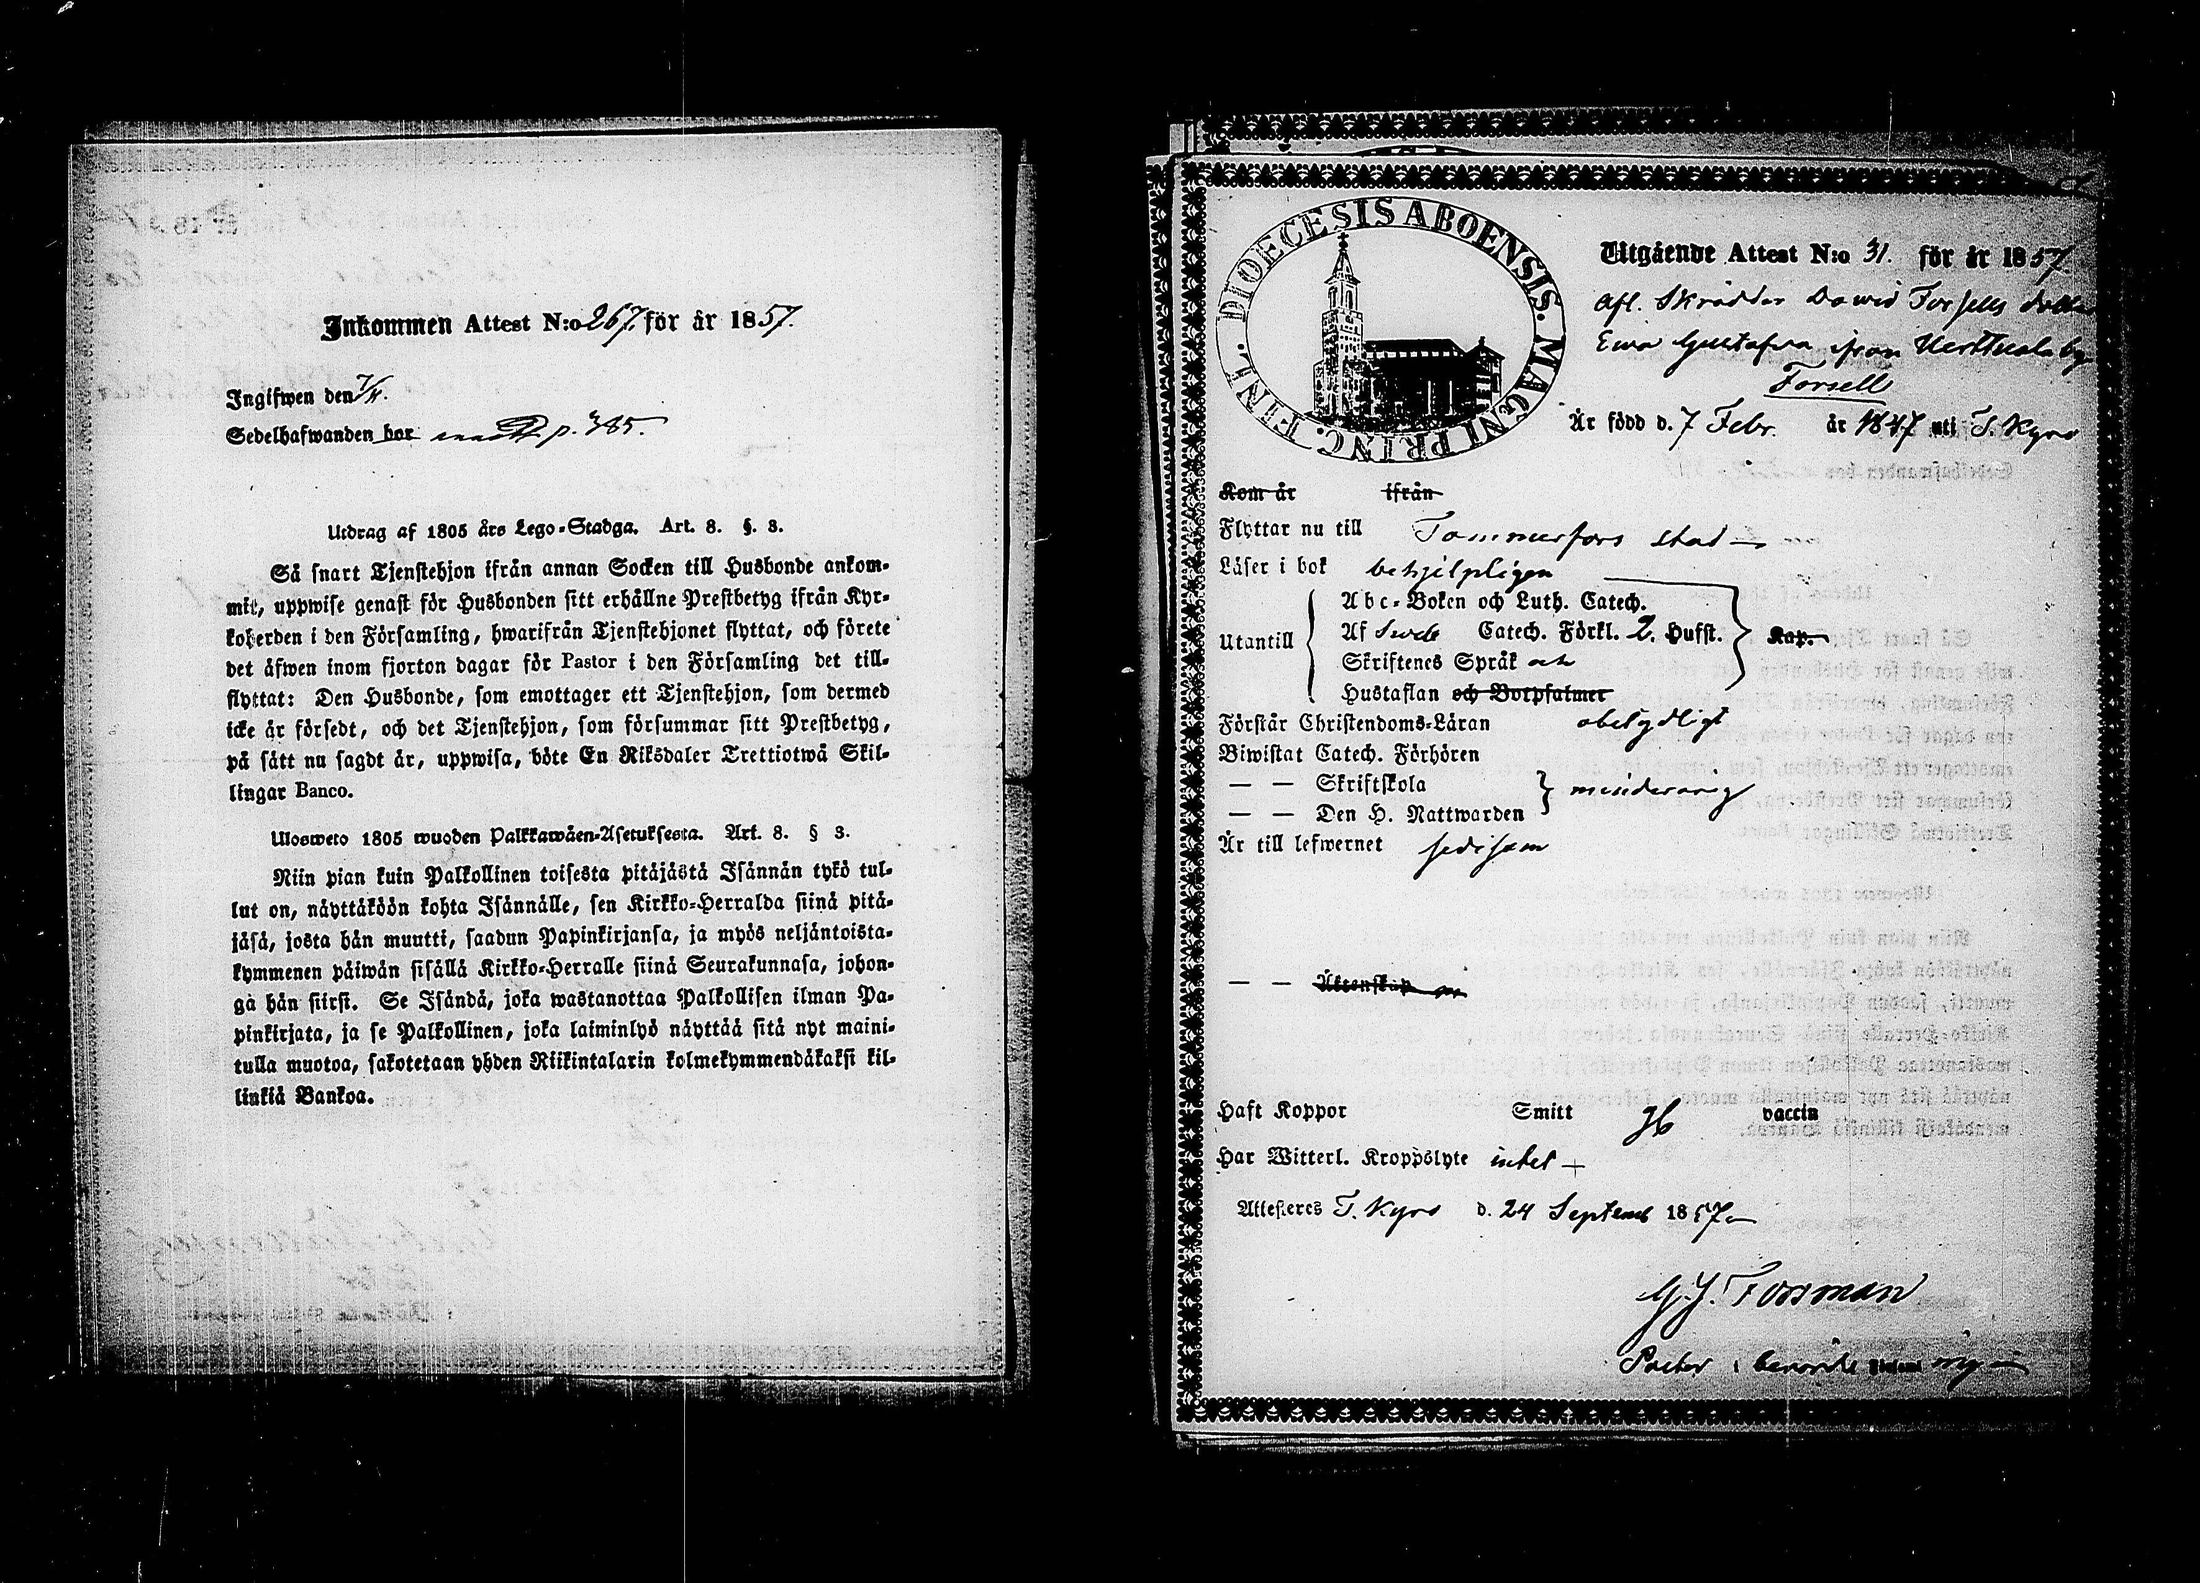 Inkommen Attest N:o 267. för år 1857.
Ingifwen den 7/11.
Sedelhafwanden bor p. 385.
Utdrag af 1805 års Lego-Stadga. Art. 8. §. 3.
Så snart Tjenstehjon ifrån annan Socken till Husbonde ankom-
mit, uppwise genast för Husbonden sitt erhållne Prestbetyg ifrån Kyr-
koherden i den Församling, hwarifrån Tjenstehjonet flyttat, och förete
det äfwen inom fjorton dagar för Pastor i den Församling det till-
flyttat: Den Husbonde, som emottager ett Tjenstehjon, som dermed
icke är försedt, och det Tjenstehjon, som försummar sitt Prestbetyg,
på sätt nu sagdt är, uppwisa, böte En Riksdaler Trettiotwå Skil-
lingar Banco.
Ulosweto 1805 wuoden Palkkawäen-Asetuksesta. Art. 8. § 3.
Niin pian kuin Palkollinen toisesta pitäjästä Isännän tykö tul-
lut on, näyttäköön kohta Isännälle, sen Kirkko-Herralda siinä pitä-
jäsä, josta hän muutti, saadun Papinkirjansa, ja myös neljäntoista-
kymmenen päiwän sisällä Kirkko-Herralle siinä Seurakunnasa, johon-
ga hän siirsi. Se Isändä, joka wastanottaa Palkollisen ilman Pa-
pinkirjata, ja se Palkollinen, joka laiminlyö näyttää sitä nyt maini-
tulla muotoa, sakotetaan yhden Riikintalarin kolmekymmendäkaksi kil-
linkiä Bankoa.
DIOECESIS ABOENSIS. MAGNI PRINC. FINL.
Utgående Attest N:o 31. för år 1857.
Afl. Skräddar Dawid Forsells dotter
Ewa Gustafva ifrån Herttuala by
Forsell
Är född d. 7 Febr. år 1847 uti T. Kyro
Kom år ifrån
Flyttar nu till Tammerfors stad
Läser i bok behjelpligen
Utantill
Abc-Boken och Luth. Catech.
Af Swebs Catech. Förkl. 2. Hufst. Kap.
Skriftenes Språk och
Hustaflan och Botpsalmer
Förstår Christendoms-Läran obetydligt
Biwistat Catech. Förhören
— — Skriftskola
— — Den H. Nattwarden minderårig
Är till lefwernet sedesam
— — Äktenskap
Haft Koppor Smitt vaccin
Har Witterl. Kroppslyte intet
Attesteres T. Kyro d. 24 Septemb 1857
G. J. Forsman
Pastor i